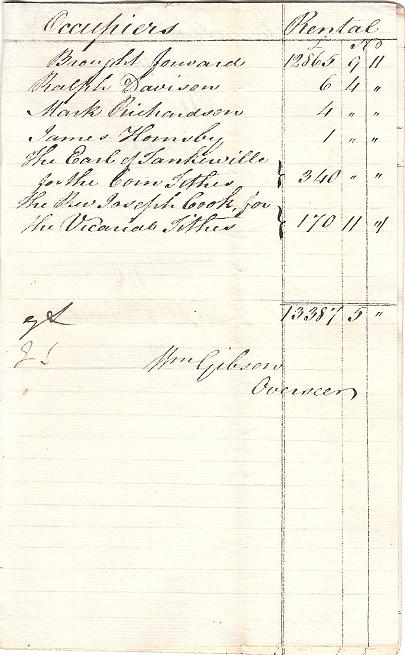 Occupiers Rental
£ s D
Brought forward 12865 9 11
Ralph Davison 6 4 "
Mark Richardson 4 " "
James Hornsby 1 " "
The Earl of Tankerville
for the Corn Tithes } 340 " "
The Rev Joseph Cook, for
the Vicarial Tithes } 170 11 1
13387 5 "
Wm Gibson
Overseer